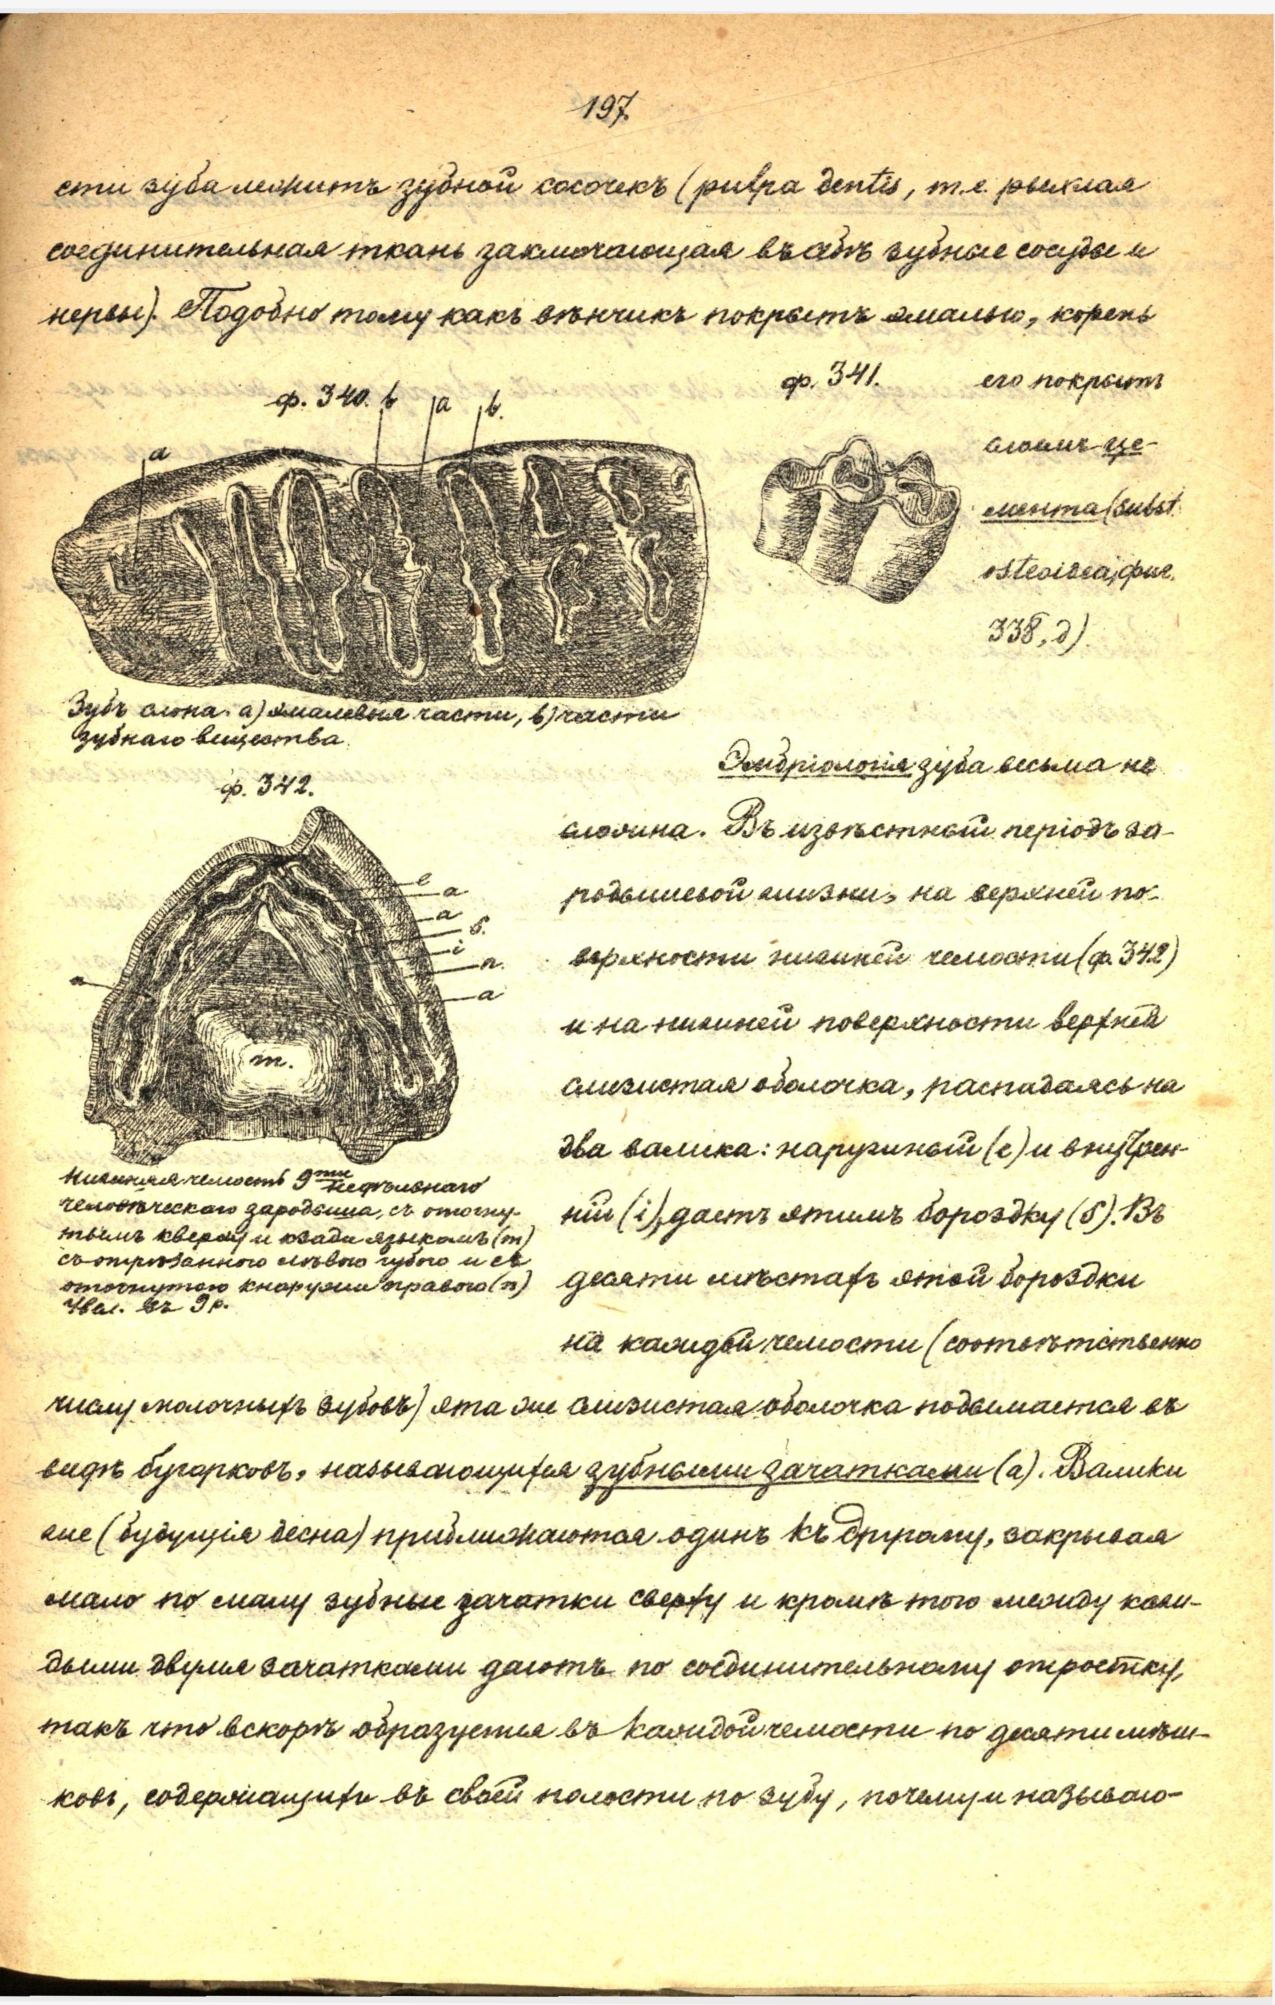 197
сти зуба лежитъ зубной сосочекъ (pulpa dentis, т.е. рыхлая
соединительная ткань заключающая въ себѣ зубные сосуды и
нервы). Подобно тому какъ вѣнчикъ покрытъ эмалью, корень
ф. 341.
его покрытъ
слоемъ це-
мента (subst.
osteoidea, фиг.
338, д).
ф. 340.
b
a
b.
a
Зубъ слона. а) эмалевыя части, b) части
зубнаго вещества
ф. 342.
e
a
a
б.
i
n.
a
n
m.
Нижняя челюсть 9ти недѣльнаго
человѣческаго зародыша, съ отогну-
тымъ кверху и кзади языкомъ (m)
съ отрѣзанного лѣвою губою и съ
отогнутою кнаружи правою (n)
Увел. въ 9 р.
Эмбріологія зуба весьма не
сложна. Въ извѣстный періодъ за-
родышевой жизни, на верхней по-
верхности нижней челюсти (ф. 342)
и на нижней поверхности верхней
слизистая оболочка, распадаясь на
два валика: наружный (е) и внутрен-
ній (i), даетъ этимъ бороздку (б). Въ
десяти мѣстахъ этой бороздки
на каждой челюсти (соотвѣтственно
числу молочныхъ зубовъ) эта же слизистая оболочка подымается въ
видѣ бугорковъ, называющихся зубными зачатками (а). Валики
же (будущія десна) приближаются одинъ къ другому, закрывая
мало по малу зубные зачатки сверху и кромѣ того между каж-
дыми двумя зачатками даютъ по соединительному отростку,
такъ что вскорѣ образуется въ каждой челюсти по десяти мѣш-
ковъ, содержащихъ въ своей полости по зубу, почему и называю-